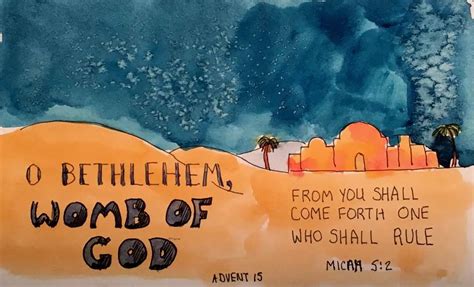 O BETHLEHEM,
WOMB OF
GOD
FROM YOU SHALL
COME FORTH ONE
WHO SHALL RULE
MICAH 5:2
ADVENT 15